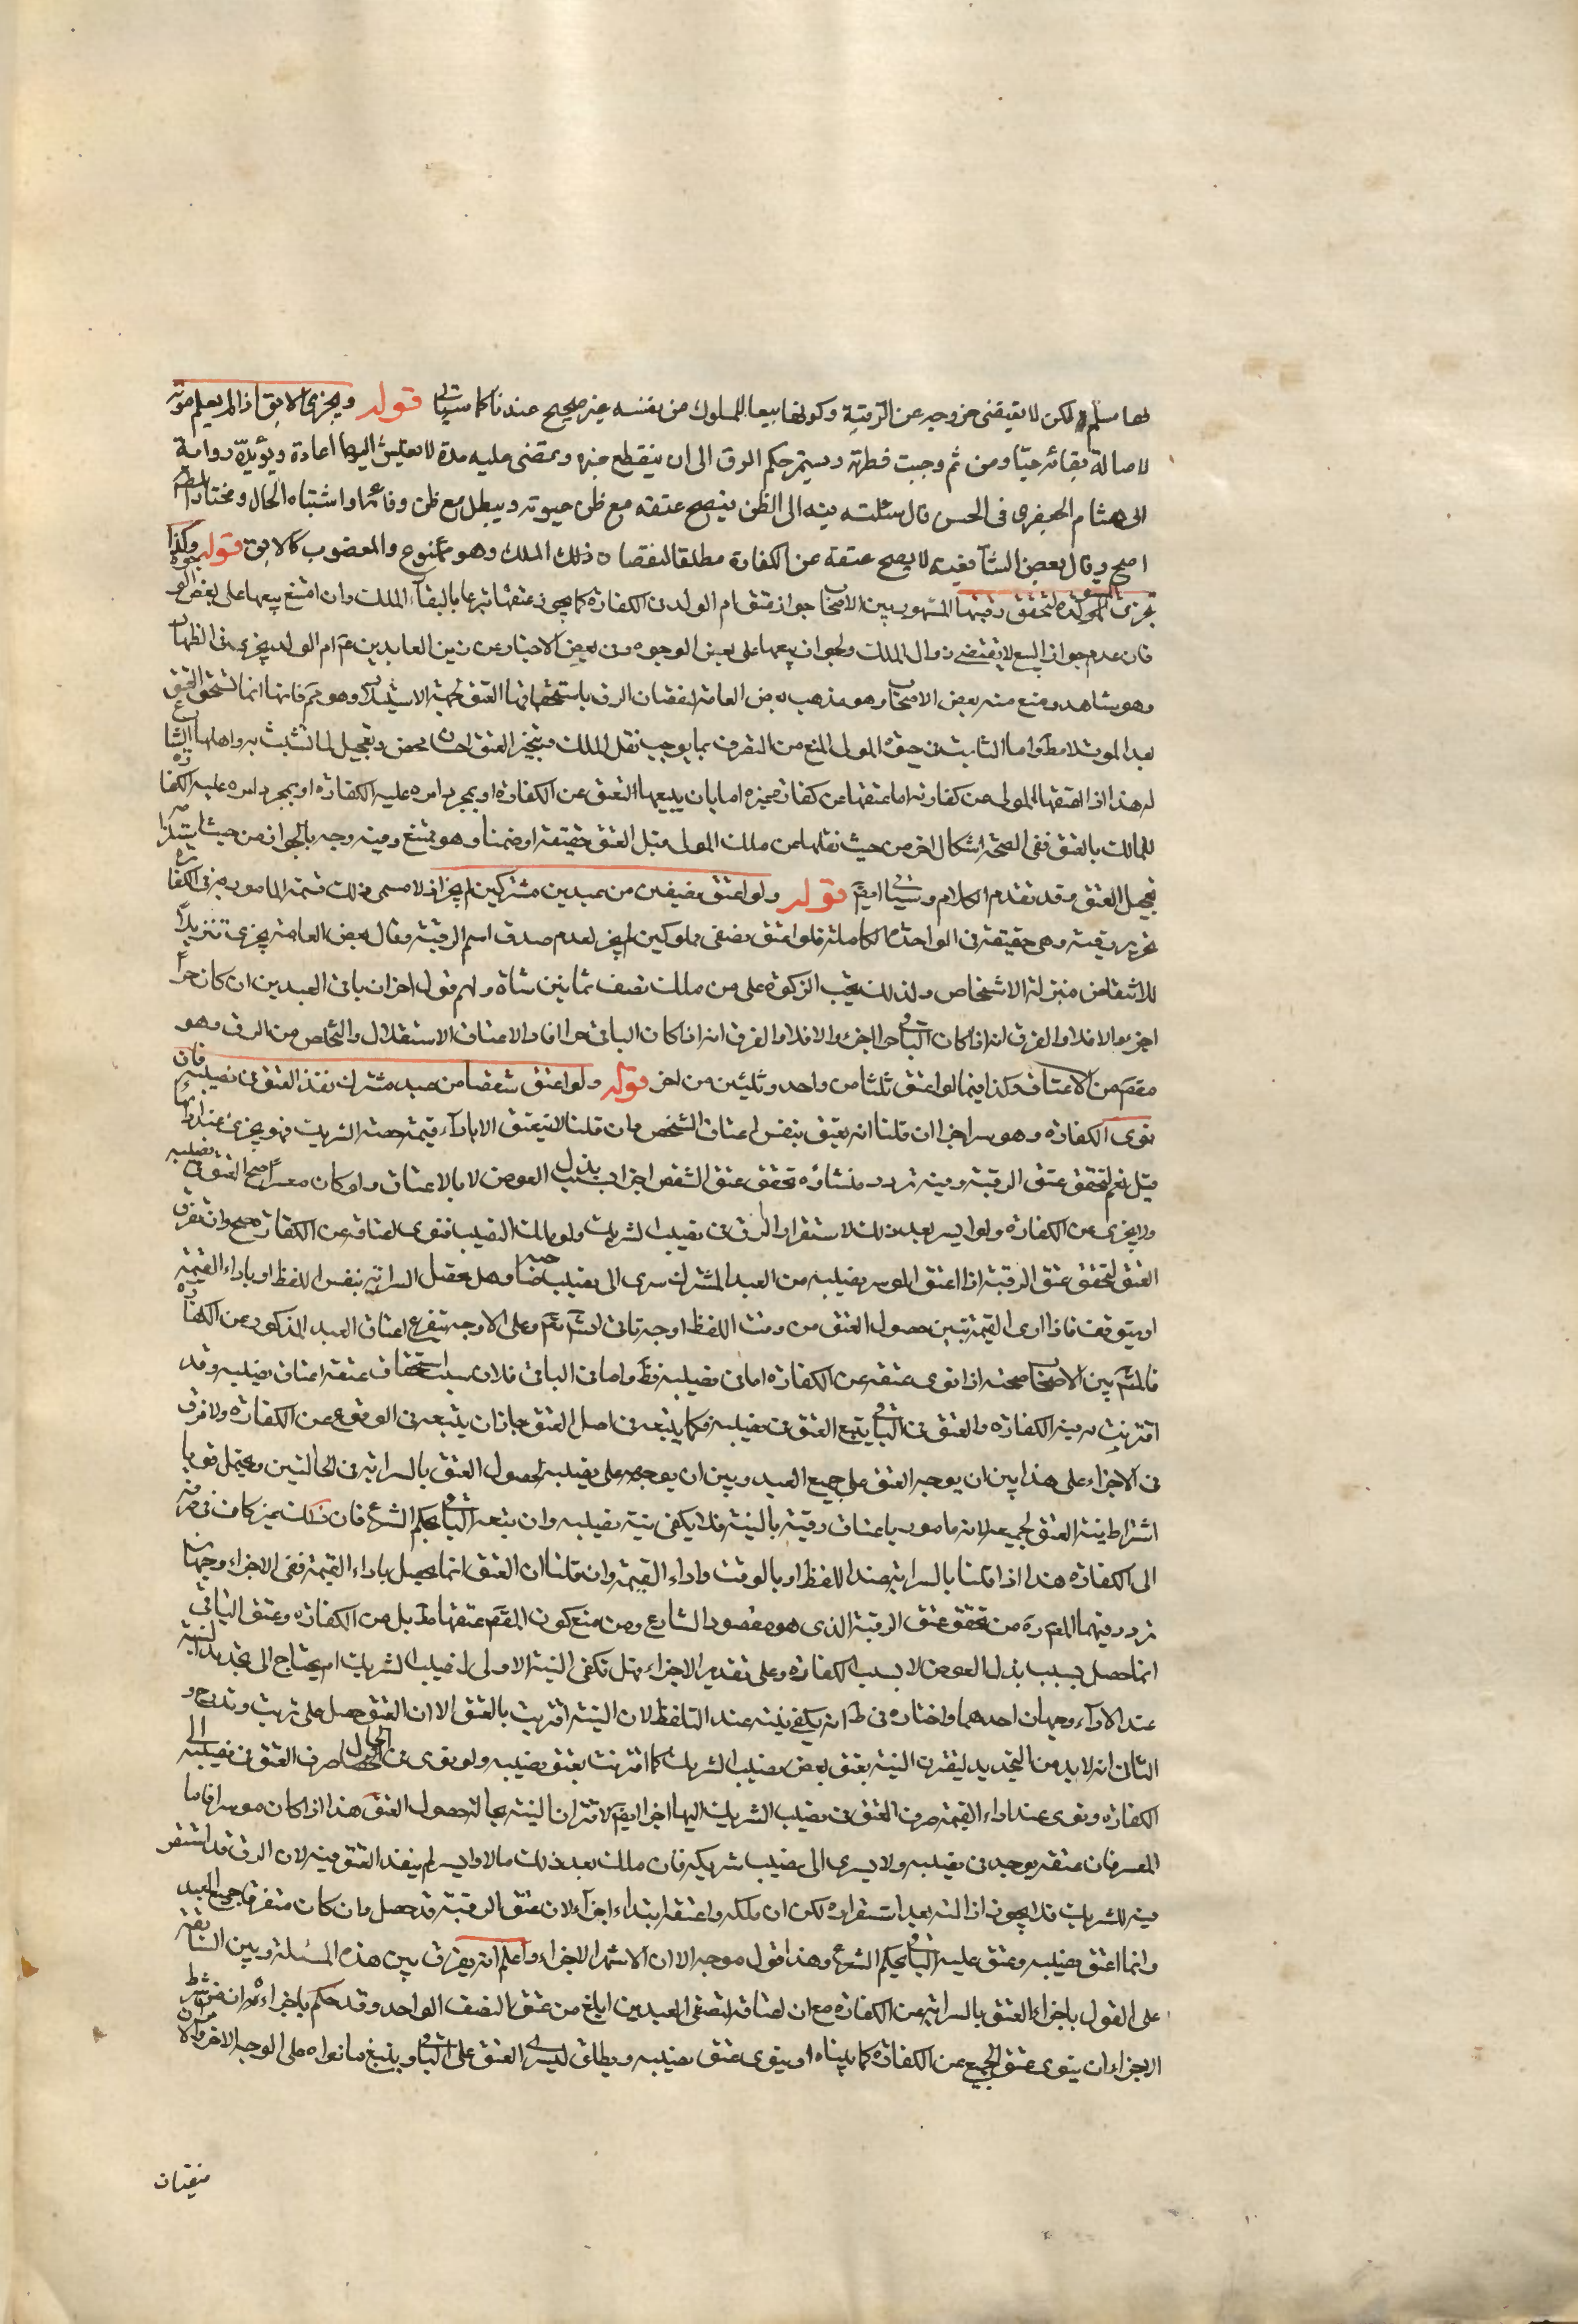 لها مسلم لكن لا يقتضى خروجه عن الرقية وكونها بيعا للمملوك من نفسه غير صحيح عندنا كما سياتى قوله ويجزى الابق اذا لم يعلم موته
لاصالة بقائه حيّا ومن ثم وجبت فطرته ويستمر حكم الرق الى ان ينقطع خبره ويمضى عليه مدة لا يعيش اليها عادة ويؤيده رواية
ابى هشام الجعفرى فى الحسن قال سئلته فيه الى الظن فيصح عتقه مع ظن حيوته ويبطل مع ظن وفاته او اشتباه الحال ومختار
اصح وقال بعض الشافعية لا يصح عتقه عن الكفارة مطلقا لنقصان ذلك الملك وهو ممنوع والمغصوب كالابق قوله وكذا
تجزى المستولدة لتحقق رقيتها المشهور بين الاصحاب جواز عتق ام الولد فى الكفارة كما يجوز عتقها تبرعا بالبقاء الملك وان امتنع بيعها على بعض الوجوه
فان عدم جواز البيع لا يقتضى زوال الملك ولجواز بيعها على بعض الوجوه وفى بعض الاخبار عن زين العابدين ع ام الولد يجزى فى الظهار
وهو شاهد ومنع منه بعض الاصحاب وهو مذهب بعض العامة لنقصان الرق باستحقاقها العتق لجهة الاستيلاد وهو م فانها انما تستحق العتق
بعد الموت لا مطلقا واما الثابت فى حيوة المولى المنع من التصرف بما يوجب نقل الملك فتنجيز العتق احسان محض وتعجيل لما تشبث به واهلها الشارع
له هذا اذا اعتقها المولى عن كفارته اما عتقها عن كفارة غيره اما بان يبيعها لتعتق عن الكفارة او بمجرد امره عليه الكفارة او بمجرد امره عليه الكفارة
للمالك بالعتق ففى الصحة اشكال اخر من حيث نقلها من ملك المولى قبل العتق حقيقة او ضمنا وهو ممتنع وفيه وجه بالجواز من حيث استلزامه
تعجيل العتق وقد تقدم الكلام وسياتى ايضا قوله ولو اعتق نصيفين من عبدين مشتركين لم يجز اذ لا يسمى ذلك نسمة المامور به فى الكفارة
تحرير رقبة وهى حقيقة فى الواحدة الكاملة فلو اعتق نصفى مملوكين لم يجز لعدم صدق اسم الرقبة وقال بعض العامة يجزى تنزيلا
للاشقاص منزلة الاشخاص ولذلك يجب الزكوة على من ملك نصف ثمانين شاة ولهم قول اخر ان باقى العبدين ان كان حرا
اجزء والا فلا والفرق انه اذا كان الباقى حرا اجزء والا فلا والفرق انه اذا كان الباقى حرا افاد الاعتاق الاستقلال والتخلص من الرق وهو
مقص من الاعتاق وكذا فيما لو اعتق ثلثا من واحد وثلثين من اخر قوله ولو اعتق شقصا من عبد مشترك نفذ العتق فى نصيبه فان
نوى الكفارة وهو موسر اجزا ان قلنا انه يعتق بنفس اعتاق الشقص وان قلنا لا ينعتق الا باداء قيمة حصة الشريك فهو يجزى عند ادائها
قيل نعم لتحقق عتق الرقبة وفيه تردد منشاؤه تحقق عتق الشقص اخيرا بسبب بذل العوض لا بالاعتاق ولو كان معسرا صح العتق فى نصيبه
ولا يجزى عن الكفارة ولو ايسر بعد ذلك لاستقرار الرق فى نصيب الشريك ولو ملك النصيب فنوى اعتاقه عن الكفارة صح وان تفرق
العتق لتحقق عتق الرقبة اذا اعتق الموسر نصيبه من العبد المشترك سرى الى نصيب صاحبه وهل يحصل السراية بنفس اللفظ او باداء القيمة
او يتوقف فاذا ادى القيمة تبين حصول العتق من وقت اللفظ اوجه تاتى انش تعم وعلى الاوجه يتفرع اعتاق العبد المذكور عن الكفارة
فالمشهور بين الاصحاب صحته اذا نوى عتقه عن الكفارة اما فى نصيبه فظ واما فى الباقى فلان سبب استحقاق عتقه اعتاق نصيبه وقد
اقترنت به نية الكفارة والعتق فى الباقى يتبع العتق فى نصيبه فكما يتبعه فى اصل العتق جاز ان يتبعه فى الوقوع عن الكفارة ولا فرق
فى الاجزاء على هذا بين ان يوجه العتق على جميع العبد وبين ان يوجهه على نصيبه لحصول العتق بالسراية فى الحالتين ويحتمل قويا
اشتراط نية العتق لجميعه لانه مامور باعتاق رقبة بالنية فلا يكفى نية نصيبه وان يتبعه الباقى بحكم الشرع فان ذلك غير كاف فى صرفه
الى الكفارة هذا اذا قلنا بالسراية عند اللفظ او بالوقت واداء القيمة وان قلنا ان العتق انما يحصل باداء القيمة ففى الاجزاء وجهان
تردد فيهما المص ره من تحقق عتق الرقبة الذى هو مقصود الشارع ومن منع كون المقص عتقها مط بل من الكفارة وعتق الباقى
انما حصل بسبب بذل العوض لا بسبب الكفارة وعلى تقدير الاجزاء هل تكفى النية الاولى لنصيب الشريك ام يحتاج الى تجديد النية
عند الاداء وجهان احدهما واختاره فى ط انه يكفى نيته عند التلفظ لان النية اقترنت بالعتق الا ان العتق حصل على ترتيب وتدريج و
الثانى انه لا بد من التجديد ليقترن النية بعتق بعض نصيب الشريك كما اقترنت بعتق نصيبه ولو نوى فى الحال صرف العتق فى نصيبه الى
الكفارة ونوى عند اداء القيمة صرف العتق فى نصيب الشريك اليها اجزا ايضا لاقتران النية بحالة حصول العتق هذا اذا كان موسرا فاما
المعسر فان عتقه يوجد فى نصيبه ولا يسرى الى نصيب شريكه فان ملك بعد ذلك مالا وايسر لم ينفذ العتق فيه لان الرق قد استقر
فيه للشريك فلا يجوز ازالته بعد استقراره لكن ان ملكه واعتقه ابتداء اجزاء لان عتق الرقبة قد حصل وان كان متفرقا جميع العبد
وانما اعتق نصيبه وعتق عليه الباقى بحكم الشرع وهذا قول موجه الا ان الاشهر الاجزاء واعلم انه يفرق بين هذه المسئلة وبين السابقة
على القول باجزاء العتق بالسراية عن الكفارة مع ان اعتاقه لنصفى العبدين ابلغ من عتق النصف الواحد وقد حكم باجزاءه ان من شرط
الاجزاء ان ينوى عتق الجميع عن الكفارة كما بيناه او ينوى عتق نصيبه ويطلق ليسرى العتق على الباقى ويتبع ما نواه على الوجه الاخر والا